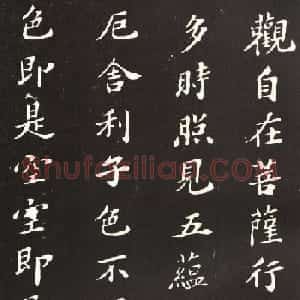 觀自在菩薩行
多時照見五蘊
厄舍利子色不
色即是空空即